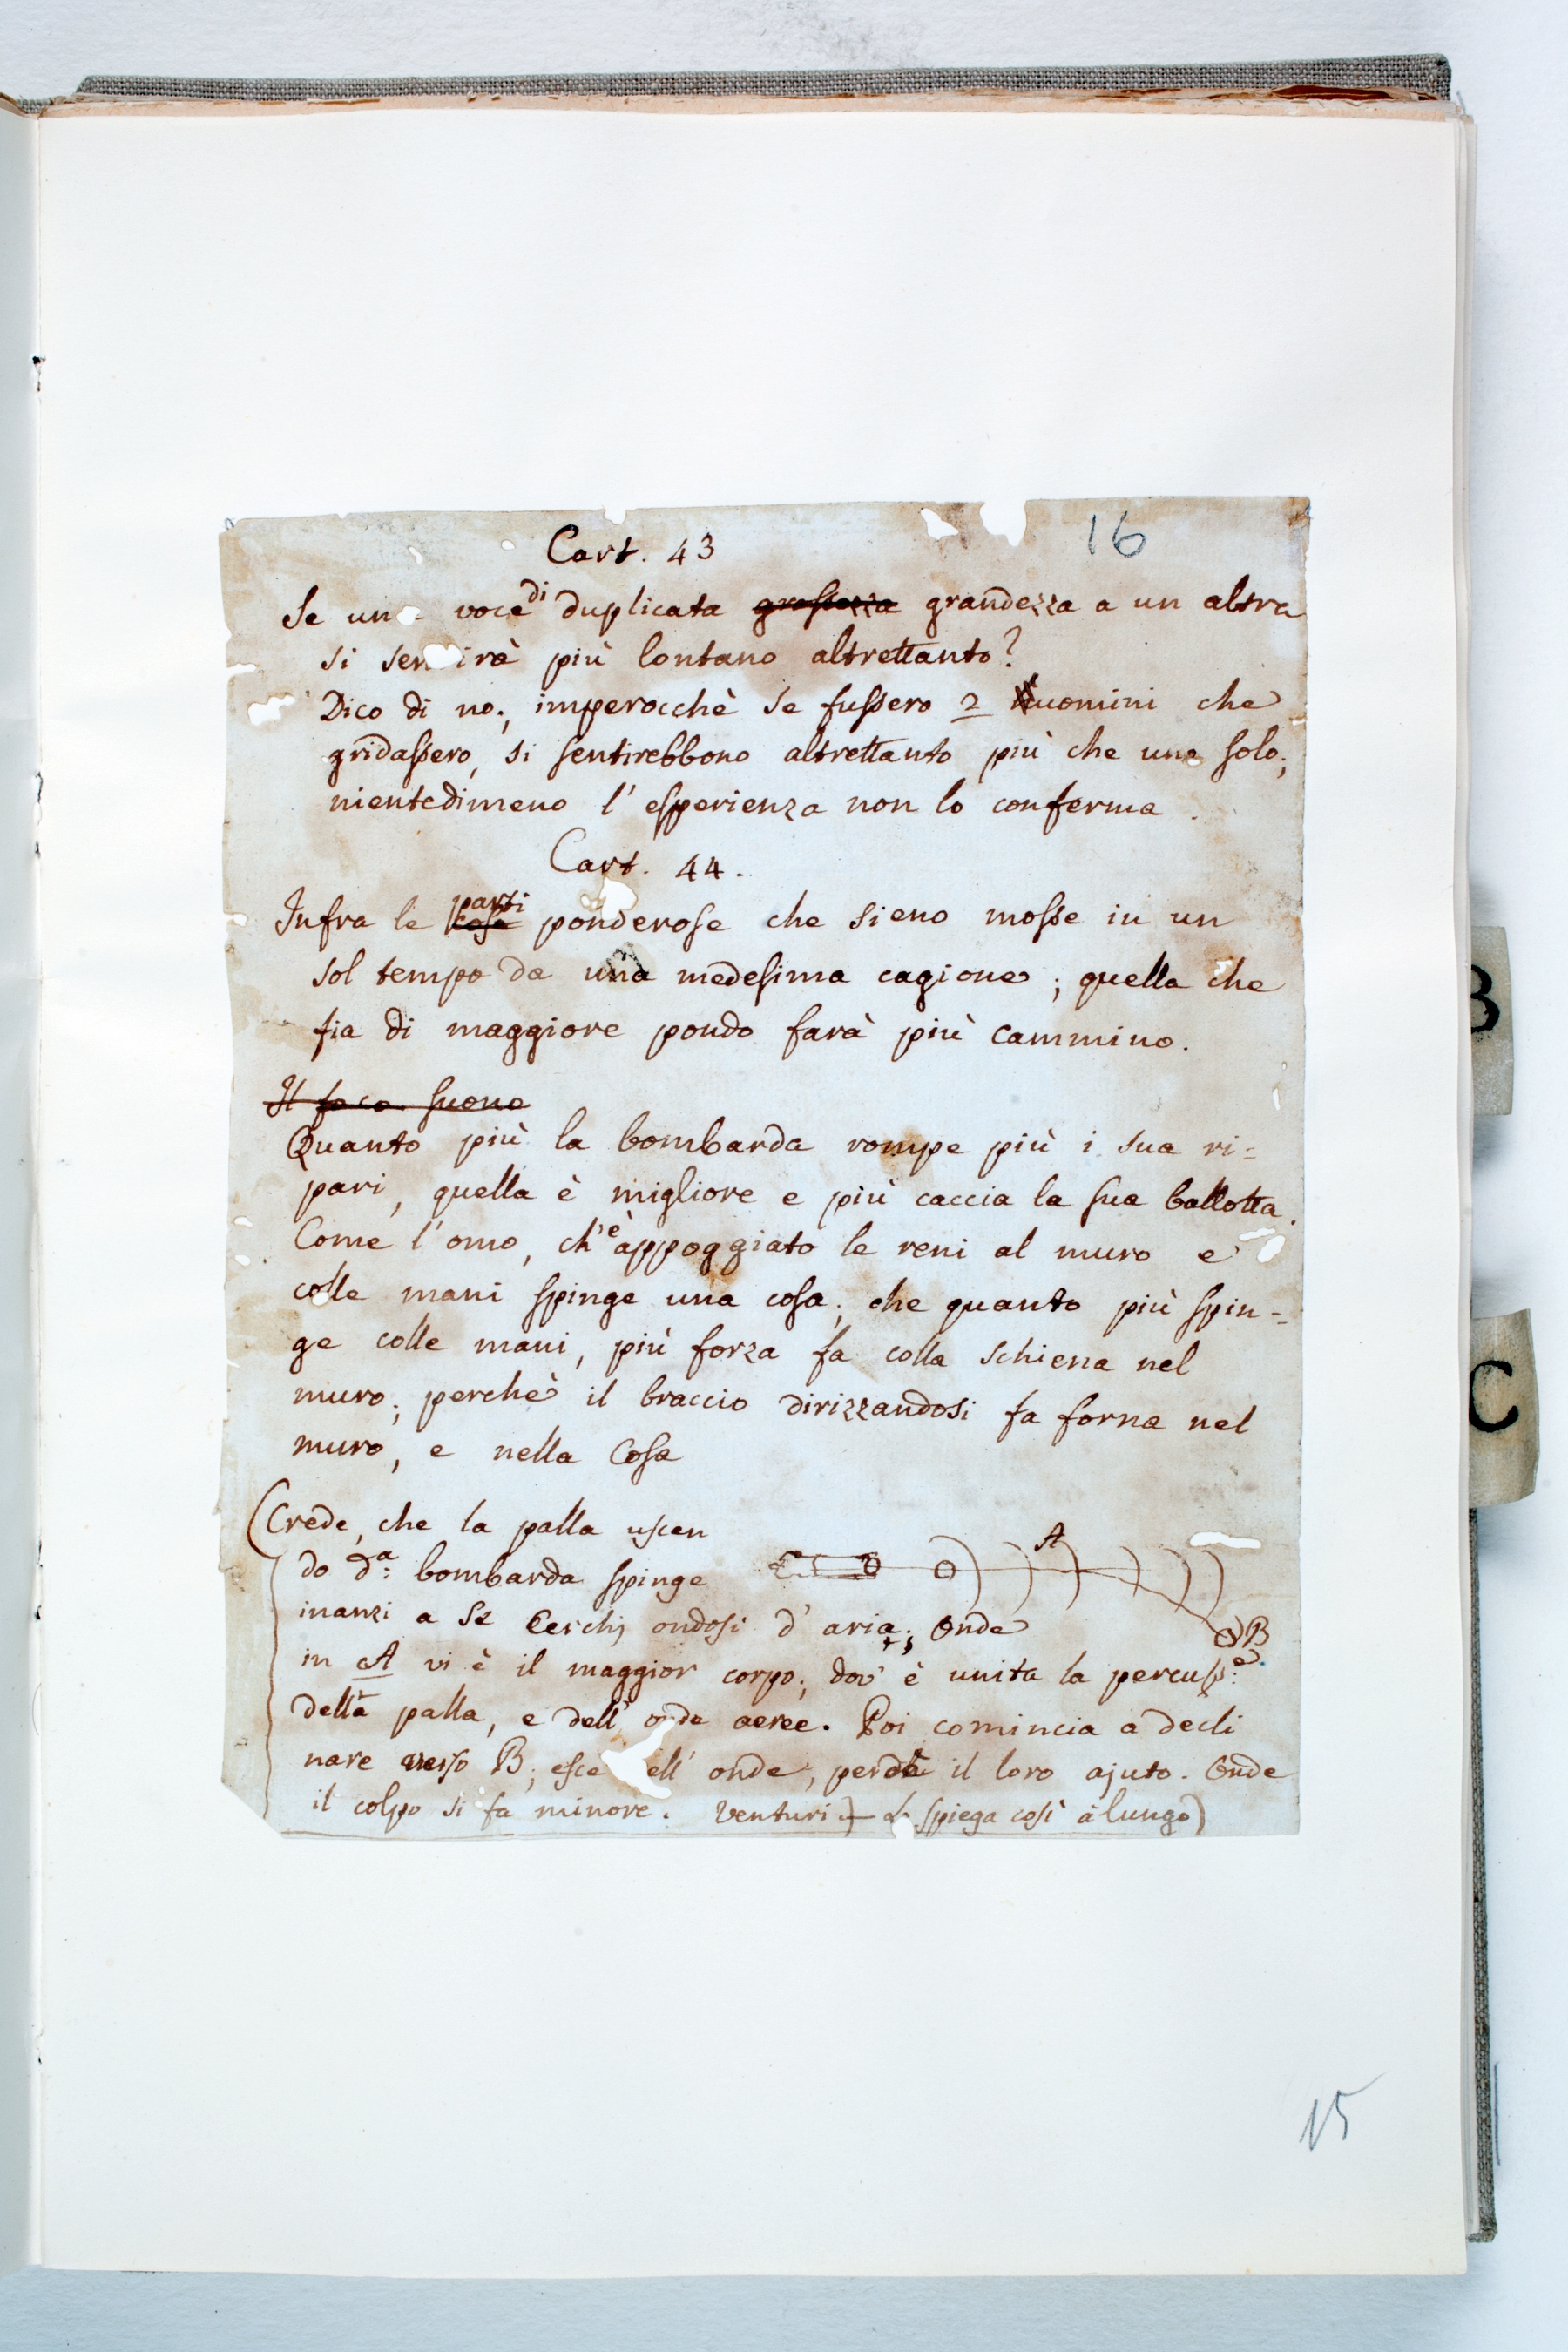 16
Cart. 43
Se un voce di duplicata grossezza grandezza a un altra
si sentirà più lontano altrettanto?
Dico di no; imperocchè se fussero 2 uomini che
gridassero, si sentirebbono altrettanto più che una solo;
nientedimeno l' esperienza non lo conferma.
Cart. 44.
Infra le cose parti ponderose che sieno mosse in un
sol tempo da una medesima cagione; quella che
fia di maggiore pondo farà più cammino.
Il suono
Quanto più la bombarda rompe più i sua ri=
pari, quella è migliore e più caccia la sua ballotta.
Come l'omo, ch'è appoggiato le reni al muro e
colle mani spinge una cosa; che quanto più spin=
ge colle mani, più forza fa colla schiena nel
muro; perchè il braccio dirizzandosi fa forna nel
muro, e nella Cosa
(Crede, che la palla uscen
do d.a bombarda spinge
A
inanzi a se Cerchj ondosi d'aria; Onde
B
in A vi è il maggior corpo; dov' è unita la percuss.e
della palla, e dell' onde aeree. Poi comincia a decli
nare verso B; esce ell' onde, perde il loro ajuto. Onde
il colpo si fa minore. Venturi spiega così à lungo)
15
B
C